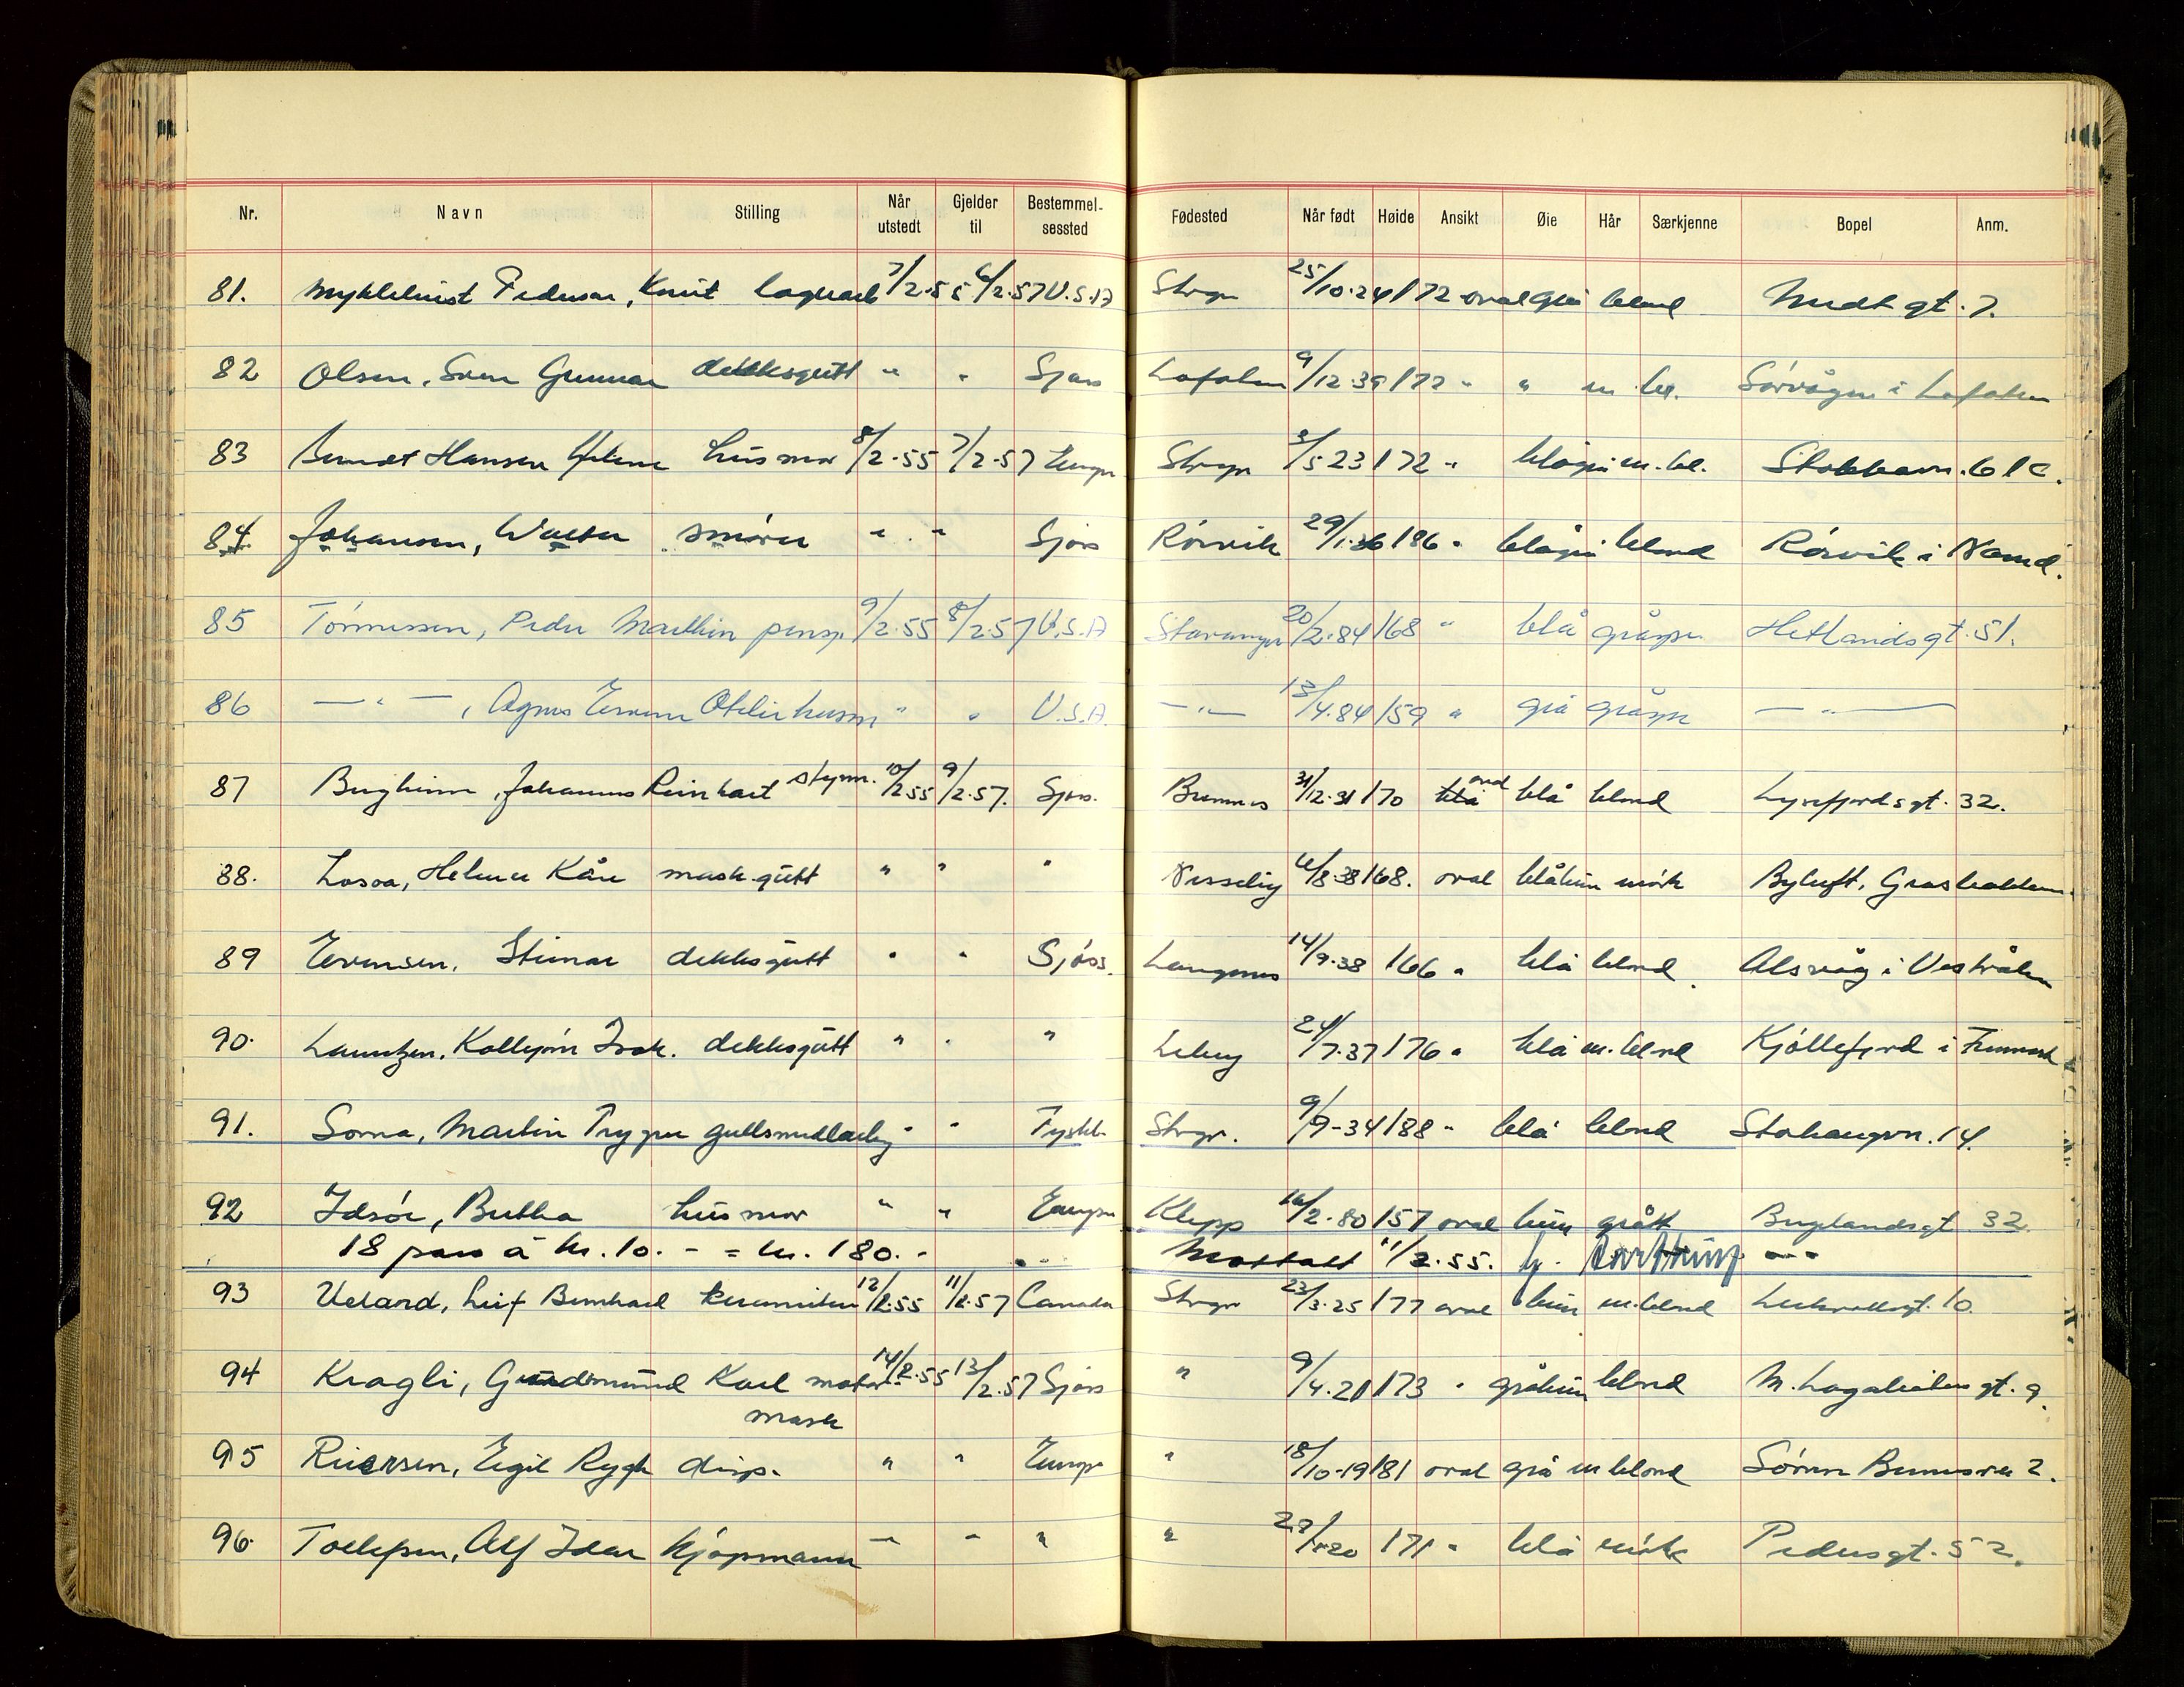 Nr. Navn Stilling Når utstedt Gjelder til Bestemmel-sessted Fødested Når født Høide Ansikt Øie Hår Særkjenne Bopel Anm.
81. Myklebust Pedersen, Knut lagerarb 7/2-55 6/2-57 U.S.A Stvgr 25/10-24 172 oval grå blond Nedt gt. 7.
82 Olsen, Sven Gunnar dekksgutt " " Sjøss Lofoten 9/12-39 172 " " m. bl. Sørvågen i Lofoten
83 Berndt Hansen Helene husmor 8/2-55 7/2-57 Europa Stvgr 3/5 23 172 " blågrå m. bl. Stokkavn. 61c.
84 Johansen, Walter smører " " Sjøss Rørvik 29/1-36 186 " blågrå blond Rørvik i Namd.
85 Tønnessen, Peder Mathin pensj. 9/2-55 8/2-57 U.S.A Stavanger 20/2-84 168 " blå gråspr. Hetlandsgt. 51.
86 — " — , Agnes Otelie husm " " U.S.A. — " — 13/4-84 159 " grå gråspr — " —
87 Bergheim, Johannes Reinhart styrm. 10/2-55 9/2-57. Sjøss. 31/12-31 170 blå oval blå blond Lysefjordsgt. 32.
88. Losoa, Helmer Kåre mask.gutt " " " 6/8-38 168. oval blåbrun mørk Byluft, Grasbakken.
89 Evensen, Steinar dekksgutt " " Sjøss. Langenes 14/9-38 166 " blå blond. Alsvåg i Vestrålen
90. Lauritzen, Kolbjørn Isak. dekksgutt " " " Lebesby 24/7-37 176 " blå m. blond Kjøllefjord i Finnmark
91. Soma, Martin Trygve gullsmedlærling " " Tyskl. Stvgr. 9/9-34 188 " blå blond Stokangvn. 14.
92 Idsøe, Bertha husmor " " Europa Klepp 16/2-80 157 oval brun grått Buglandsgt 32.
18 pass á kr. 10.- = kr. 180.- Mottatt 11/2.55.
93 Veland, Leif Bernhard keramiker 12/2-55 11/2-57 Canada Stvgr 23/3-25 177 oval brun m. blond 10.
94 Kragli, Gudmund Karl motor-mask 14/2-55 13/2-57 Sjøss " 9/4-21 173 " gråbrun blond N. gt. 9.
95 Riiersen, Egil Rygh disp. " " Europa " 18/10-19 181 oval grå m blond Søren Bernersvn 2.
96. Tollefsen, Alf Idar kjøpmann " " " " 171 " blå mørk Pedersgt. 52.